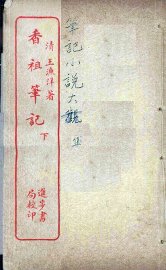 筆記小說大觀
清王漁洋著
香祖筆記 下
進步書
局校印